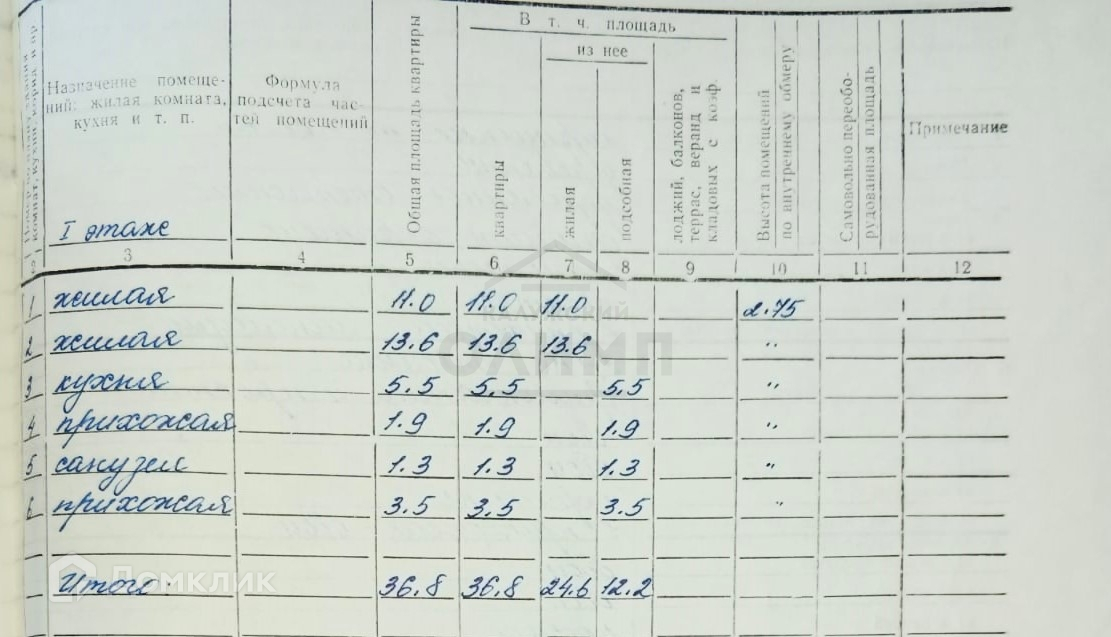 Номер по плану здания комнат, кухни, корид. и пр
Назначение помеще-
ний: жилая комната,
кухня и т. п.
I этаже
Формула
подсчета час-
тей помещений
Общая площадь квартиры
В т. ч. площадь
из нее
квартиры
жилая
подсобная
лоджий, балконов,
террас, веранд и
кладовых с коэф.
Высота помещений
по внутреннему обмеру
Самовольно переобо-
рудованная площадь
Примечание
2 3 4 5 6 7 8 9 10 11 12
1 жилая 11.0 11.0 11.0 2.75
2 жилая 13.6 13.6 13.6 "
3 кухня 5.5 5.5 5.5 "
4 прихожая 1.9 1.9 1.9 "
5 санузел 1.3 1.3 1.3 "
6 прихожая 3.5 3.5 3.5 "
Итого: 36.8 36.8 24.6 12.2
ОЛИМП
Домклик